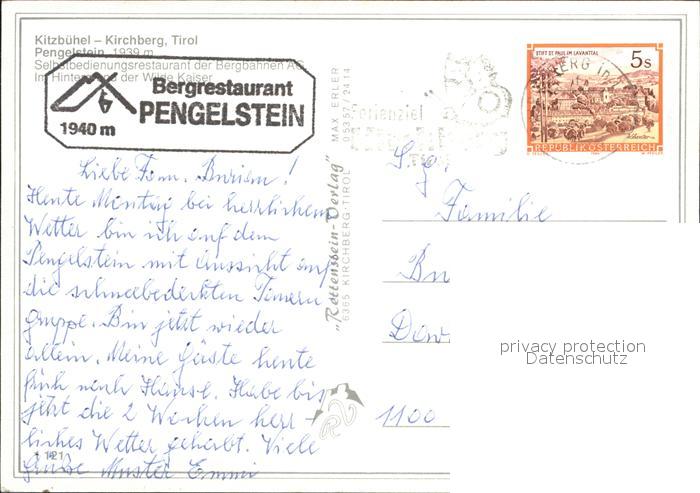 Kitzbühel – Kirchberg, Tirol
Pengelstein, 1939 m
Selbstbedienungsrestaurant der Bergbahnen AG
Im Hintergrund der Wilde Kaiser
Bergrestaurant
PENGELSTEIN
1940 m
Liebe Fam. Burian!
Heute Montag bei herrlichem
Wetter bin ich auf dem
Pengelstein mit Aussicht auf
die schneebedeckten Tauern
gruppe. Bin jetzt wieder
allein. Meine Gäste heute
früh nach Hause. Habe bis
jetzt die 2 Wochen herr-
liches Wetter gehabt. Viele
Grüße Muster Emmi
121
"Rettenstein-Verlag"
6365 KIRCHBERG · TIROL
MAX ERLER
05357/2414
Ferienziel
STIFT ST. PAUL IM LAVANTTAL
5 S
REPUBLIK ÖSTERREICH
BERG IN
S. g.
Familie
Bu
1100
privacy protection
Datenschutz